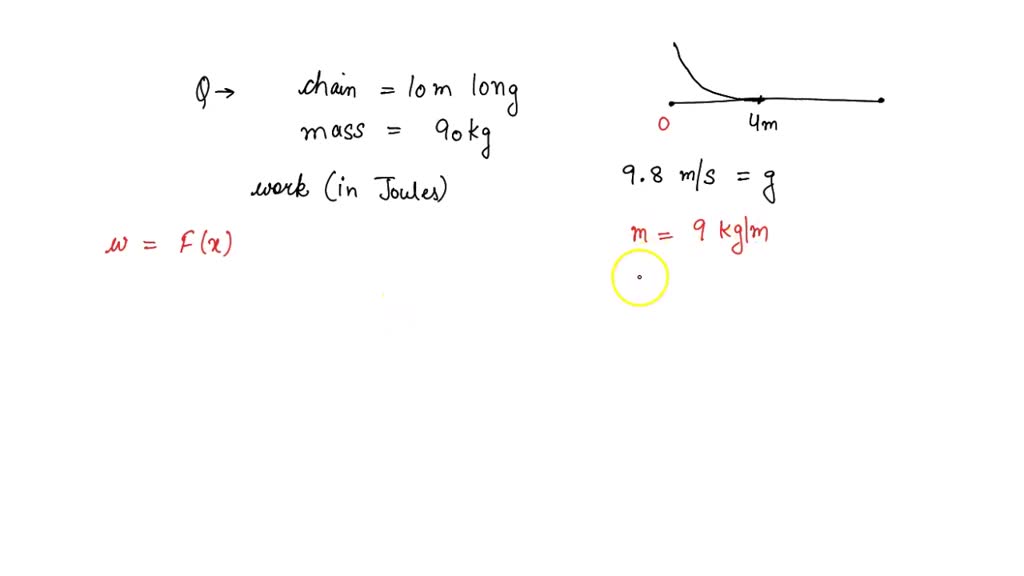 Q → chain = 10m long
mass = 90kg
work (in Joules)
0 4m
9.8 m/s = g
w = F(x)
m = 9 kg/m